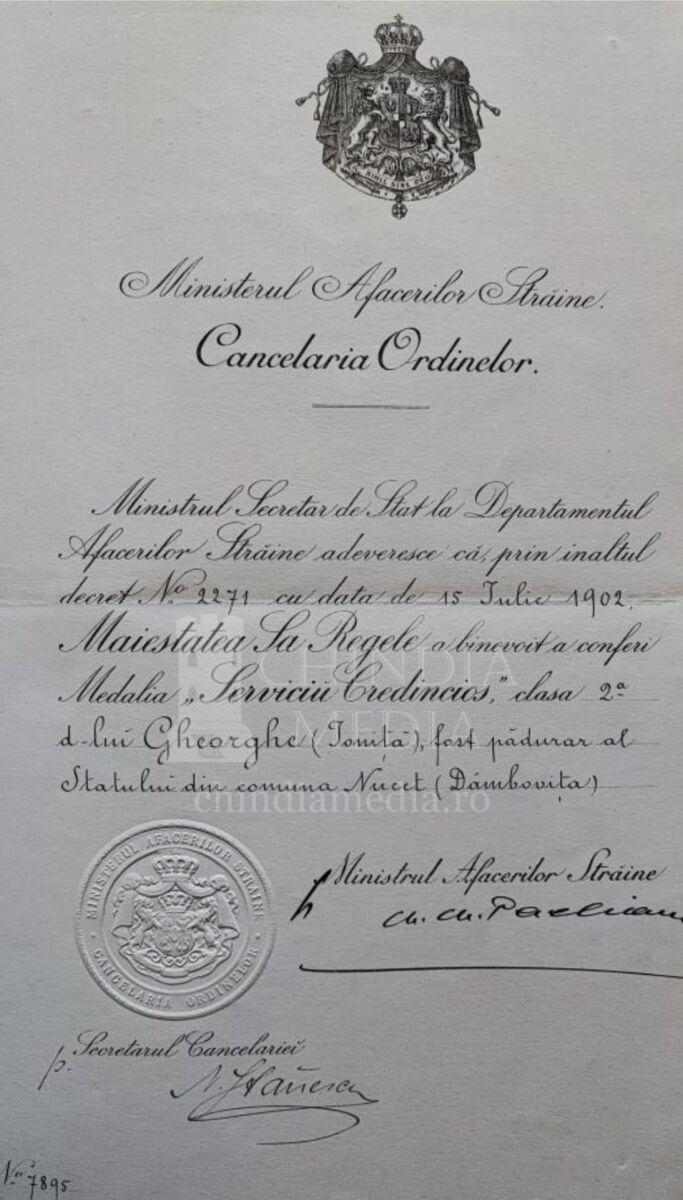 NIHIL SINE DEO
Ministerul Afacerilor Străine.
Cancelaria Ordinelor.
Ministrul Secretar de Stat la Departamentul
Afacerilor Străine adeveresce că, prin inaltul
decret No. 2271 cu data de 15 Iulie 1902.
Maiestatea Sa Regele a binevoit a conferi
Medalia „Serviciŭ Credincios," clasa 2ª
d-lui Gheorghe (Ioniță), fost pădurar al
Statului din comuna Nucet (Dâmbovița)
CHINDIA
MEDIA
chindiamedia.ro
MINISTERUL AFACERILOR STRAINE
CANCELARIA ORDINELOR
Ministrul Afacerilor Străine
p. Secretarul Cancelariei
No. 7895